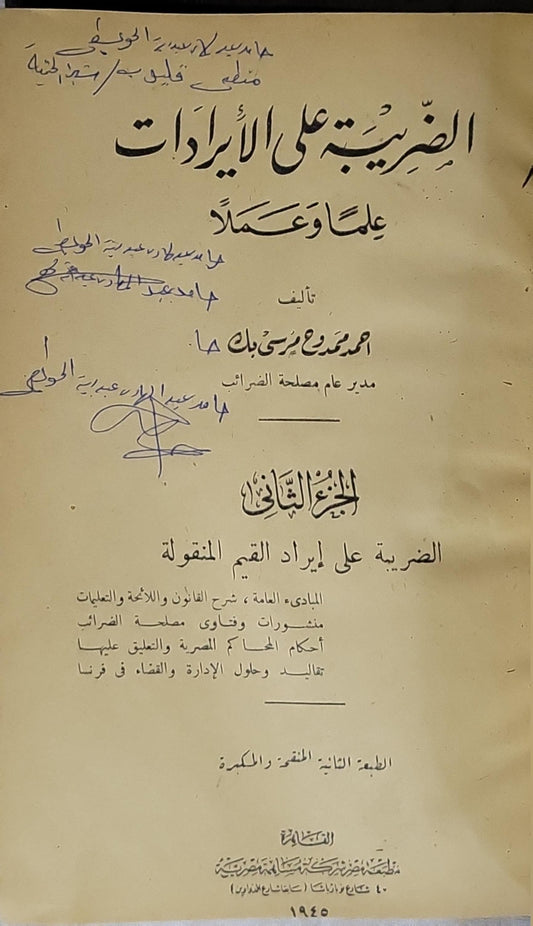 حامد عبد الهادى عبد ربه الحويطى
منطى قليوبيه /
الضَّرِيبَة عَلى الأيرادَات
عِلمًا وَعَمَلًا
حامد عبد الهادى عبد ربه الحويطى
حامد عبد الهادى عبد ربه
تأليف
احمد ممدوح مرسى بك
حا
مدير عام مصلحة الضرائب
حامد عبد الهادى عبد ربه الحويطى
الجزء الثَّانى
الضريبة على إيراد القيم المنقولة
المبادىء العامة ، شرح القانون واللائحة والتعليمات
منشورات وفتاوى مصلحة الضرائب
أحكام المحاكم المصرية والتعليق عليها
تقاليد وحلول الإدارة والقضاء فى فرنسا
الطبعة الثانية المنقحة والمكبرة
القاهرة
مطبعة مصر شركة مساهمة مصرية
٤٠ شارع نوبار باشا (سابقا شارع الدواوين)
١٩٤٥